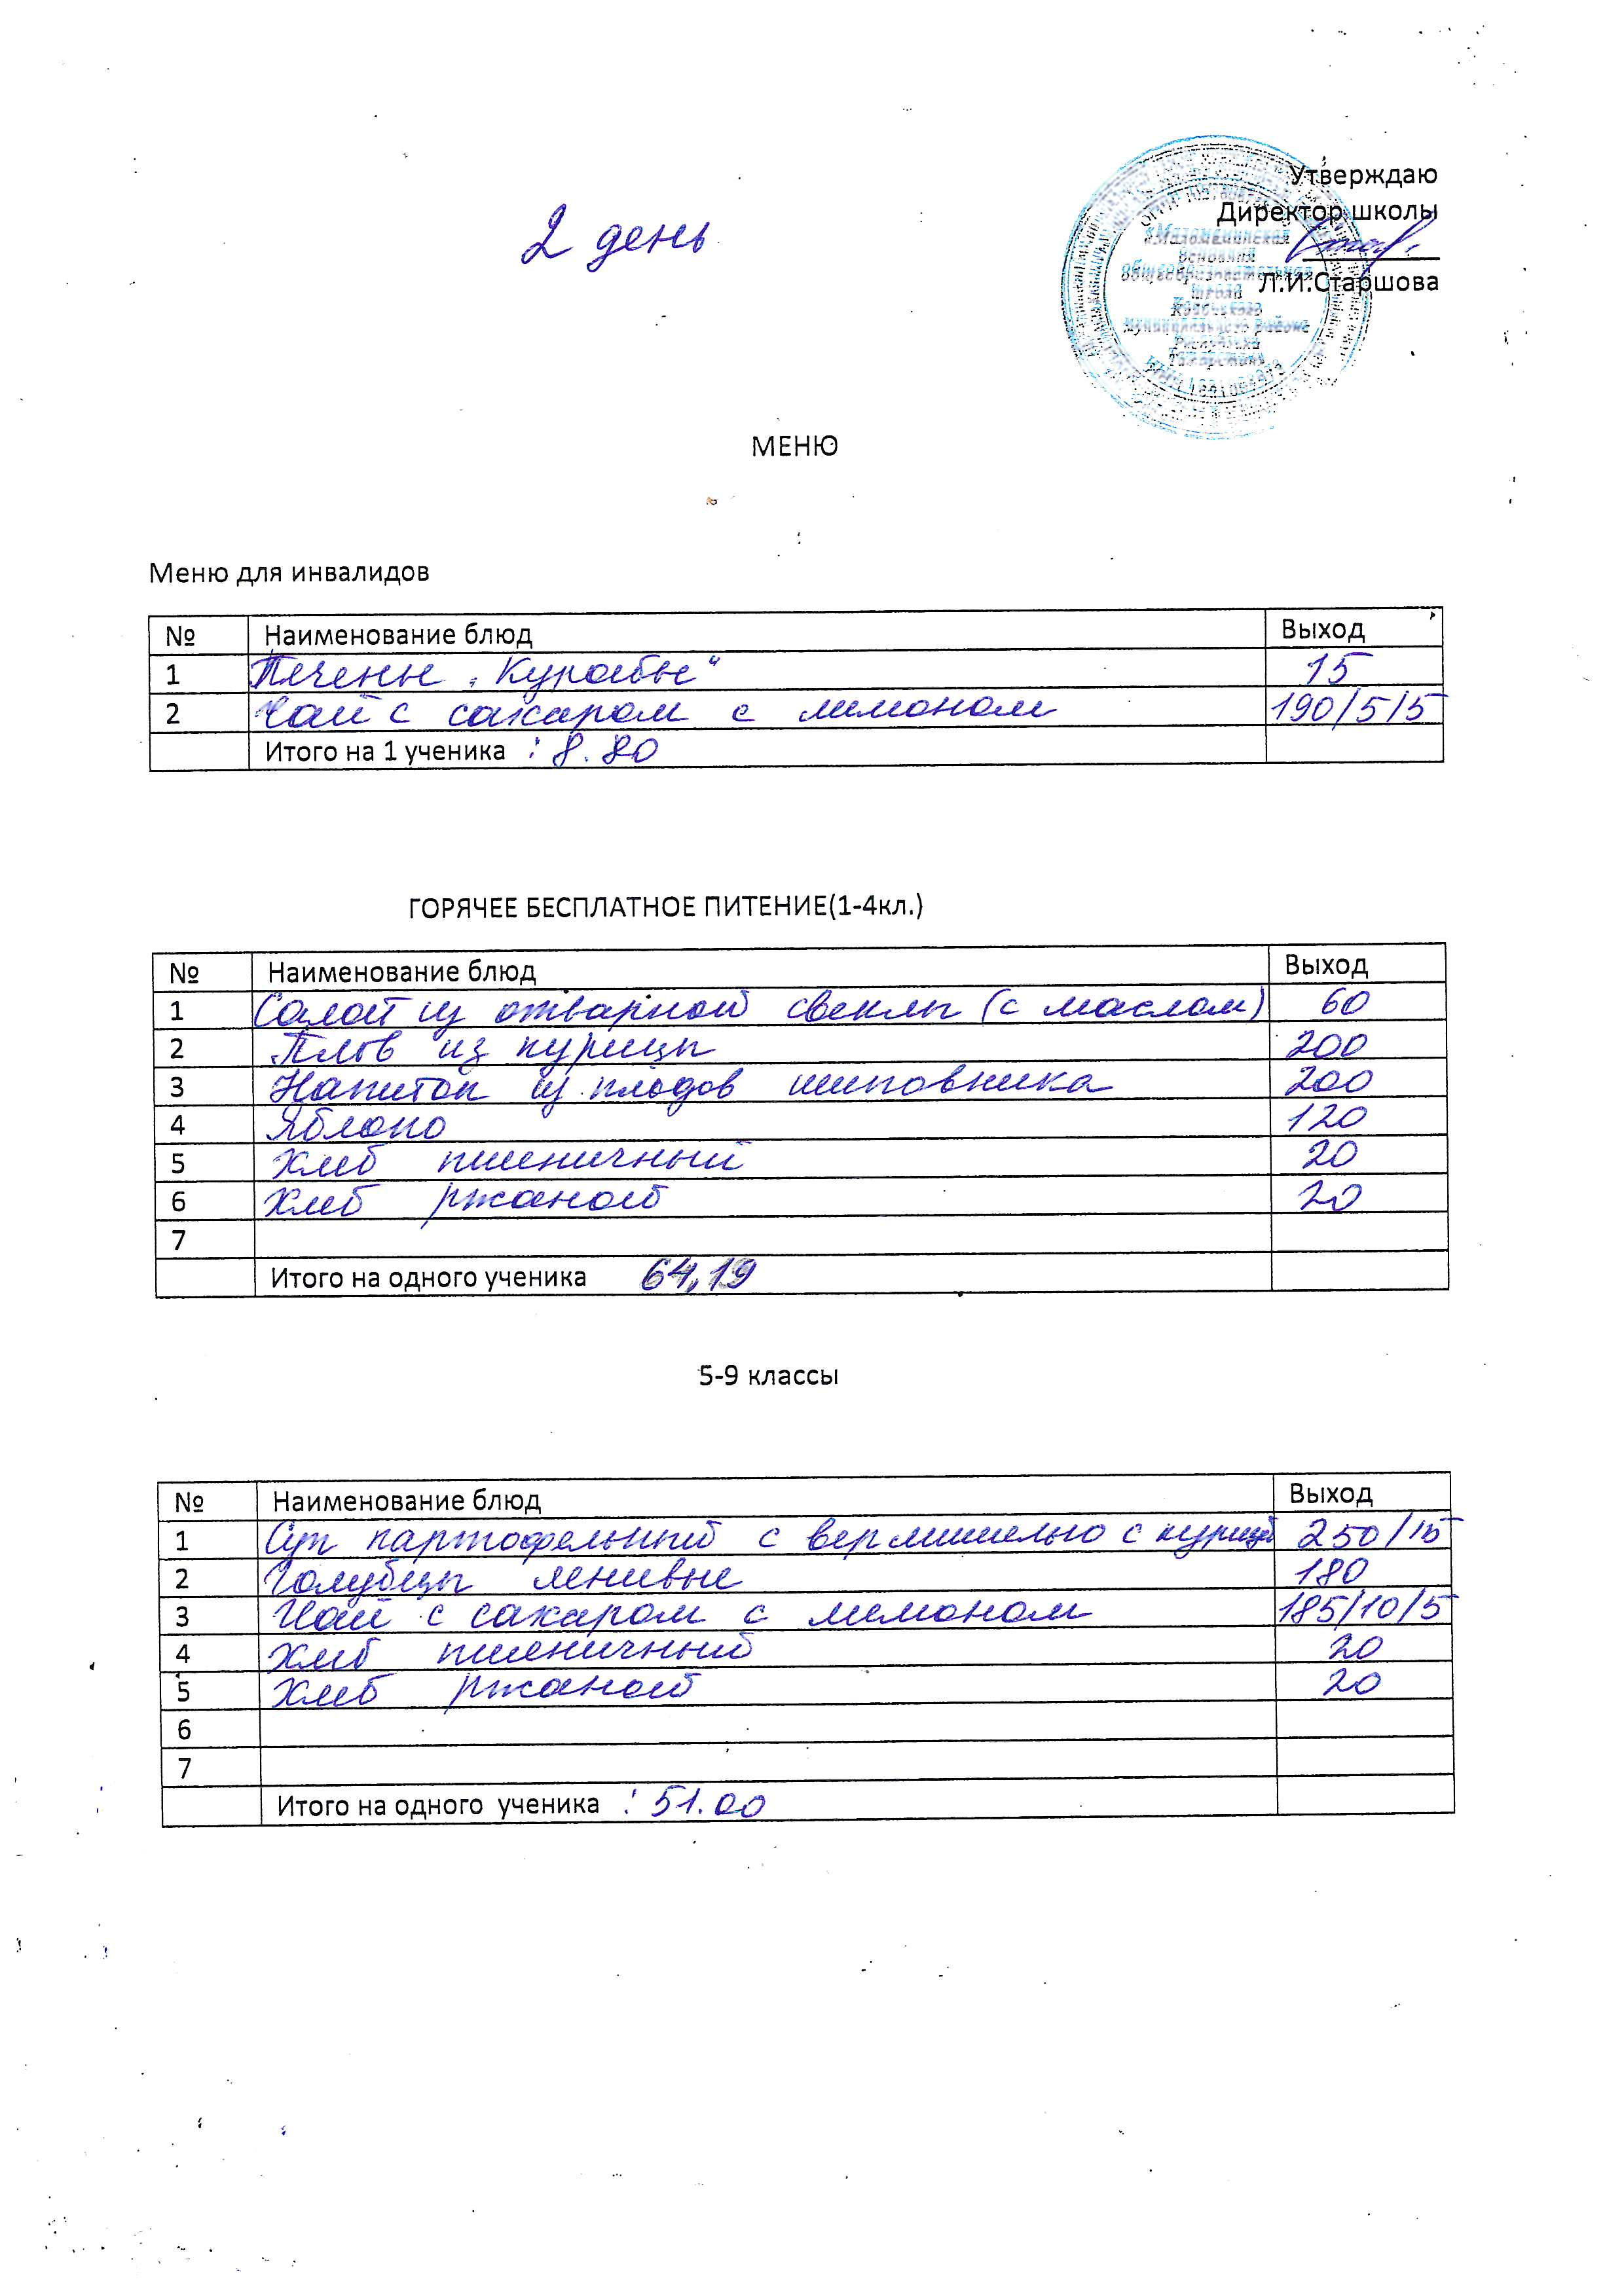 Утверждаю
2 день
Директор школы
Л.И.Старшова
«Маломеминская
основная
общеобразовательная
школа
муниципального района
Республики
Татарстан»
МЕНЮ
Меню для инвалидов
№ Наименование блюд Выход
1 Печенье "Курабье" 15
2 Чай с сахаром с лимоном 190/5/5
Итого на 1 ученика : 8.80
ГОРЯЧЕЕ БЕСПЛАТНОЕ ПИТЕНИЕ(1-4кл.)
№ Наименование блюд Выход
1 Салат из отварной свеклы (с маслом) 60
2 Плов из курицы 200
3 Напиток из плодов шиповника 200
4 Яблоко 120
5 Хлеб пшеничный 20
6 Хлеб ржаной 20
7
Итого на одного ученика 64,19
5-9 классы
№ Наименование блюд Выход
1 Суп картофельный с вермишелью с курицей 250/15
2 Голубцы ленивые 180
3 Чай с сахаром с лимоном 185/10/5
4 Хлеб пшеничный 20
5 Хлеб ржаной 20
6
7
Итого на одного ученика : 51.00